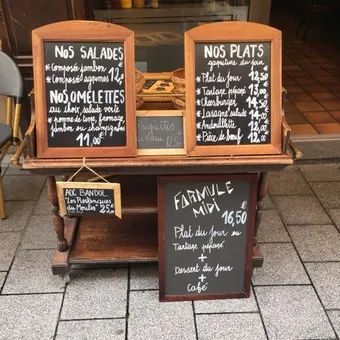 NOS SALADES
Composée jambon 12,
Composée agrumes 12,
NOS OMELETTES
au choix salade verte
ou frites
jambon ou fromage
ou champignons
11,00
NOS PLATS
garniture du jour
* Plat du jour 12,50
* Tartare pépère 13,50
* Cheesburger 14,50
* Lasagne 14,50
* Andouillette 14,50
* Pièce de bœuf 14,00
12,50
AOC BANDOL
Les Restanques
du Moulin 25,
FARMULE
MIDI 16,50
Plat du jour
ou
Tartare pépère
+
Dessert du jour
+
Café